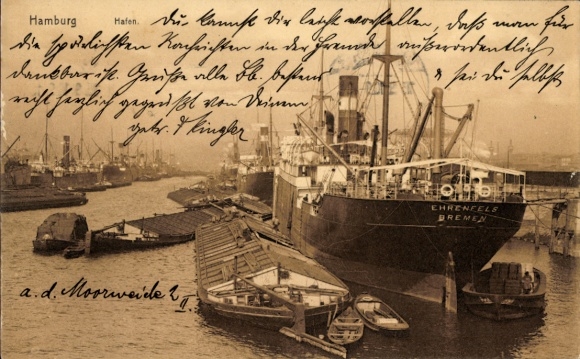 Hamburg Hafen.
Du kannst dir leicht vorstellen, daß man für
die spärlichsten Nachrichten in der Fremde außerordentlich
dankbar ist. Grüße alle Bb. bestens & sei du selbst
recht herzlich gegrüßt von Deinem
getr. Klingler
EHRENFELS
BREMEN
a. d. Moorweide 2
II.